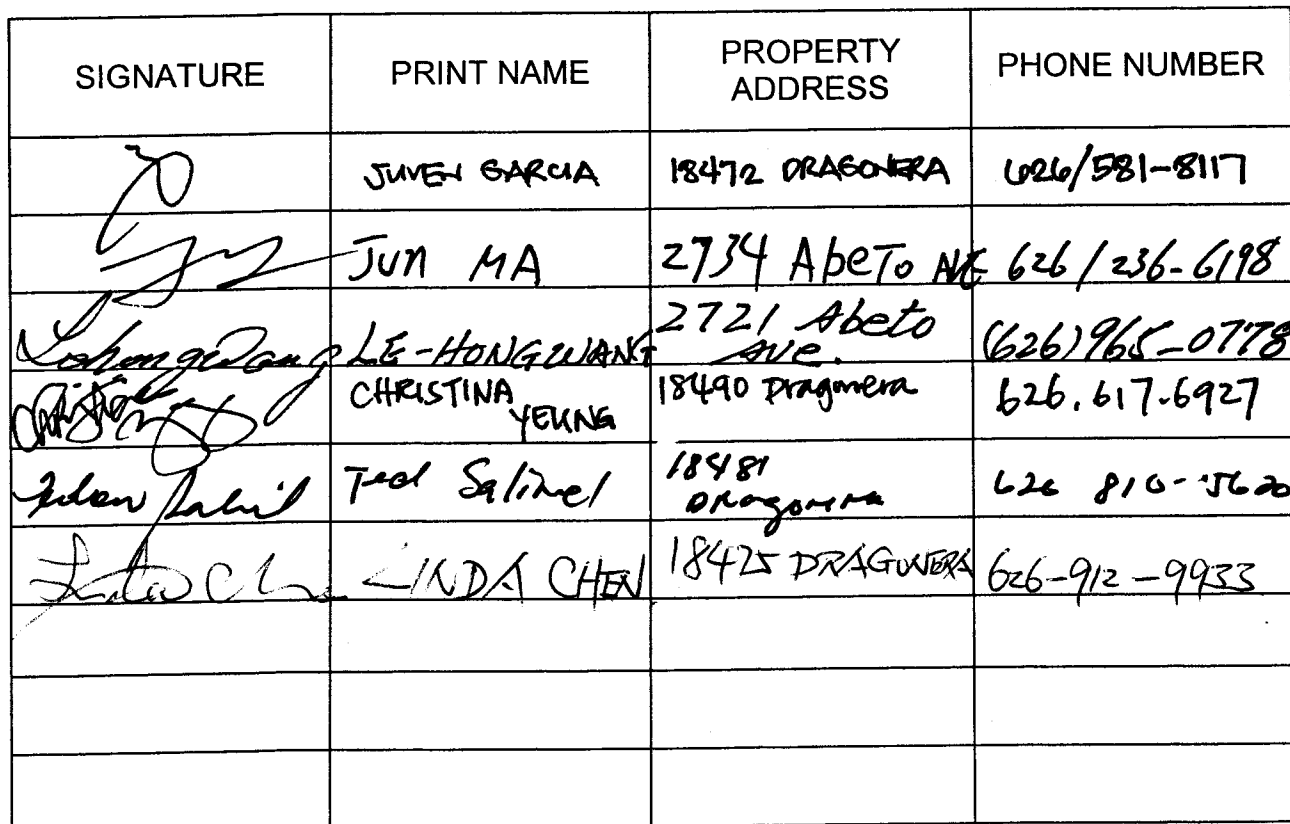 SIGNATURE PRINT NAME PROPERTY ADDRESS PHONE NUMBER
JUVEN GARCIA 18472 DRAGONERA 626/581-8117
Jun MA 2734 AbeTo AVE 626/236-6198
LE-HONG WANG 2721 Abeto Ave. (626)965-0778
CHRISTINA YEUNG 18490 Dragonera 626.617.6927
Ted 18481 Dragonera 626 810-5620
Linda Chen LINDA CHEN 18425 DRAGONERA 626-912-9933